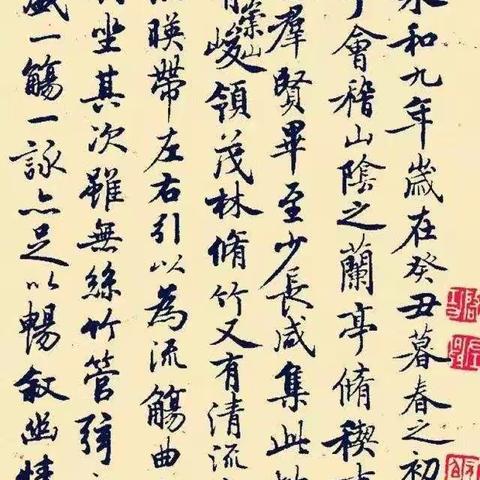 永和九年歲在癸丑暮春之初
會稽山陰之蘭亭脩稧
羣賢畢至少長咸集此
崇山
峻領茂林脩竹又有清流
暎帶左右引以為流觴曲
坐其次雖無絲竹管弦
一觴一詠亦足以暢敘幽情